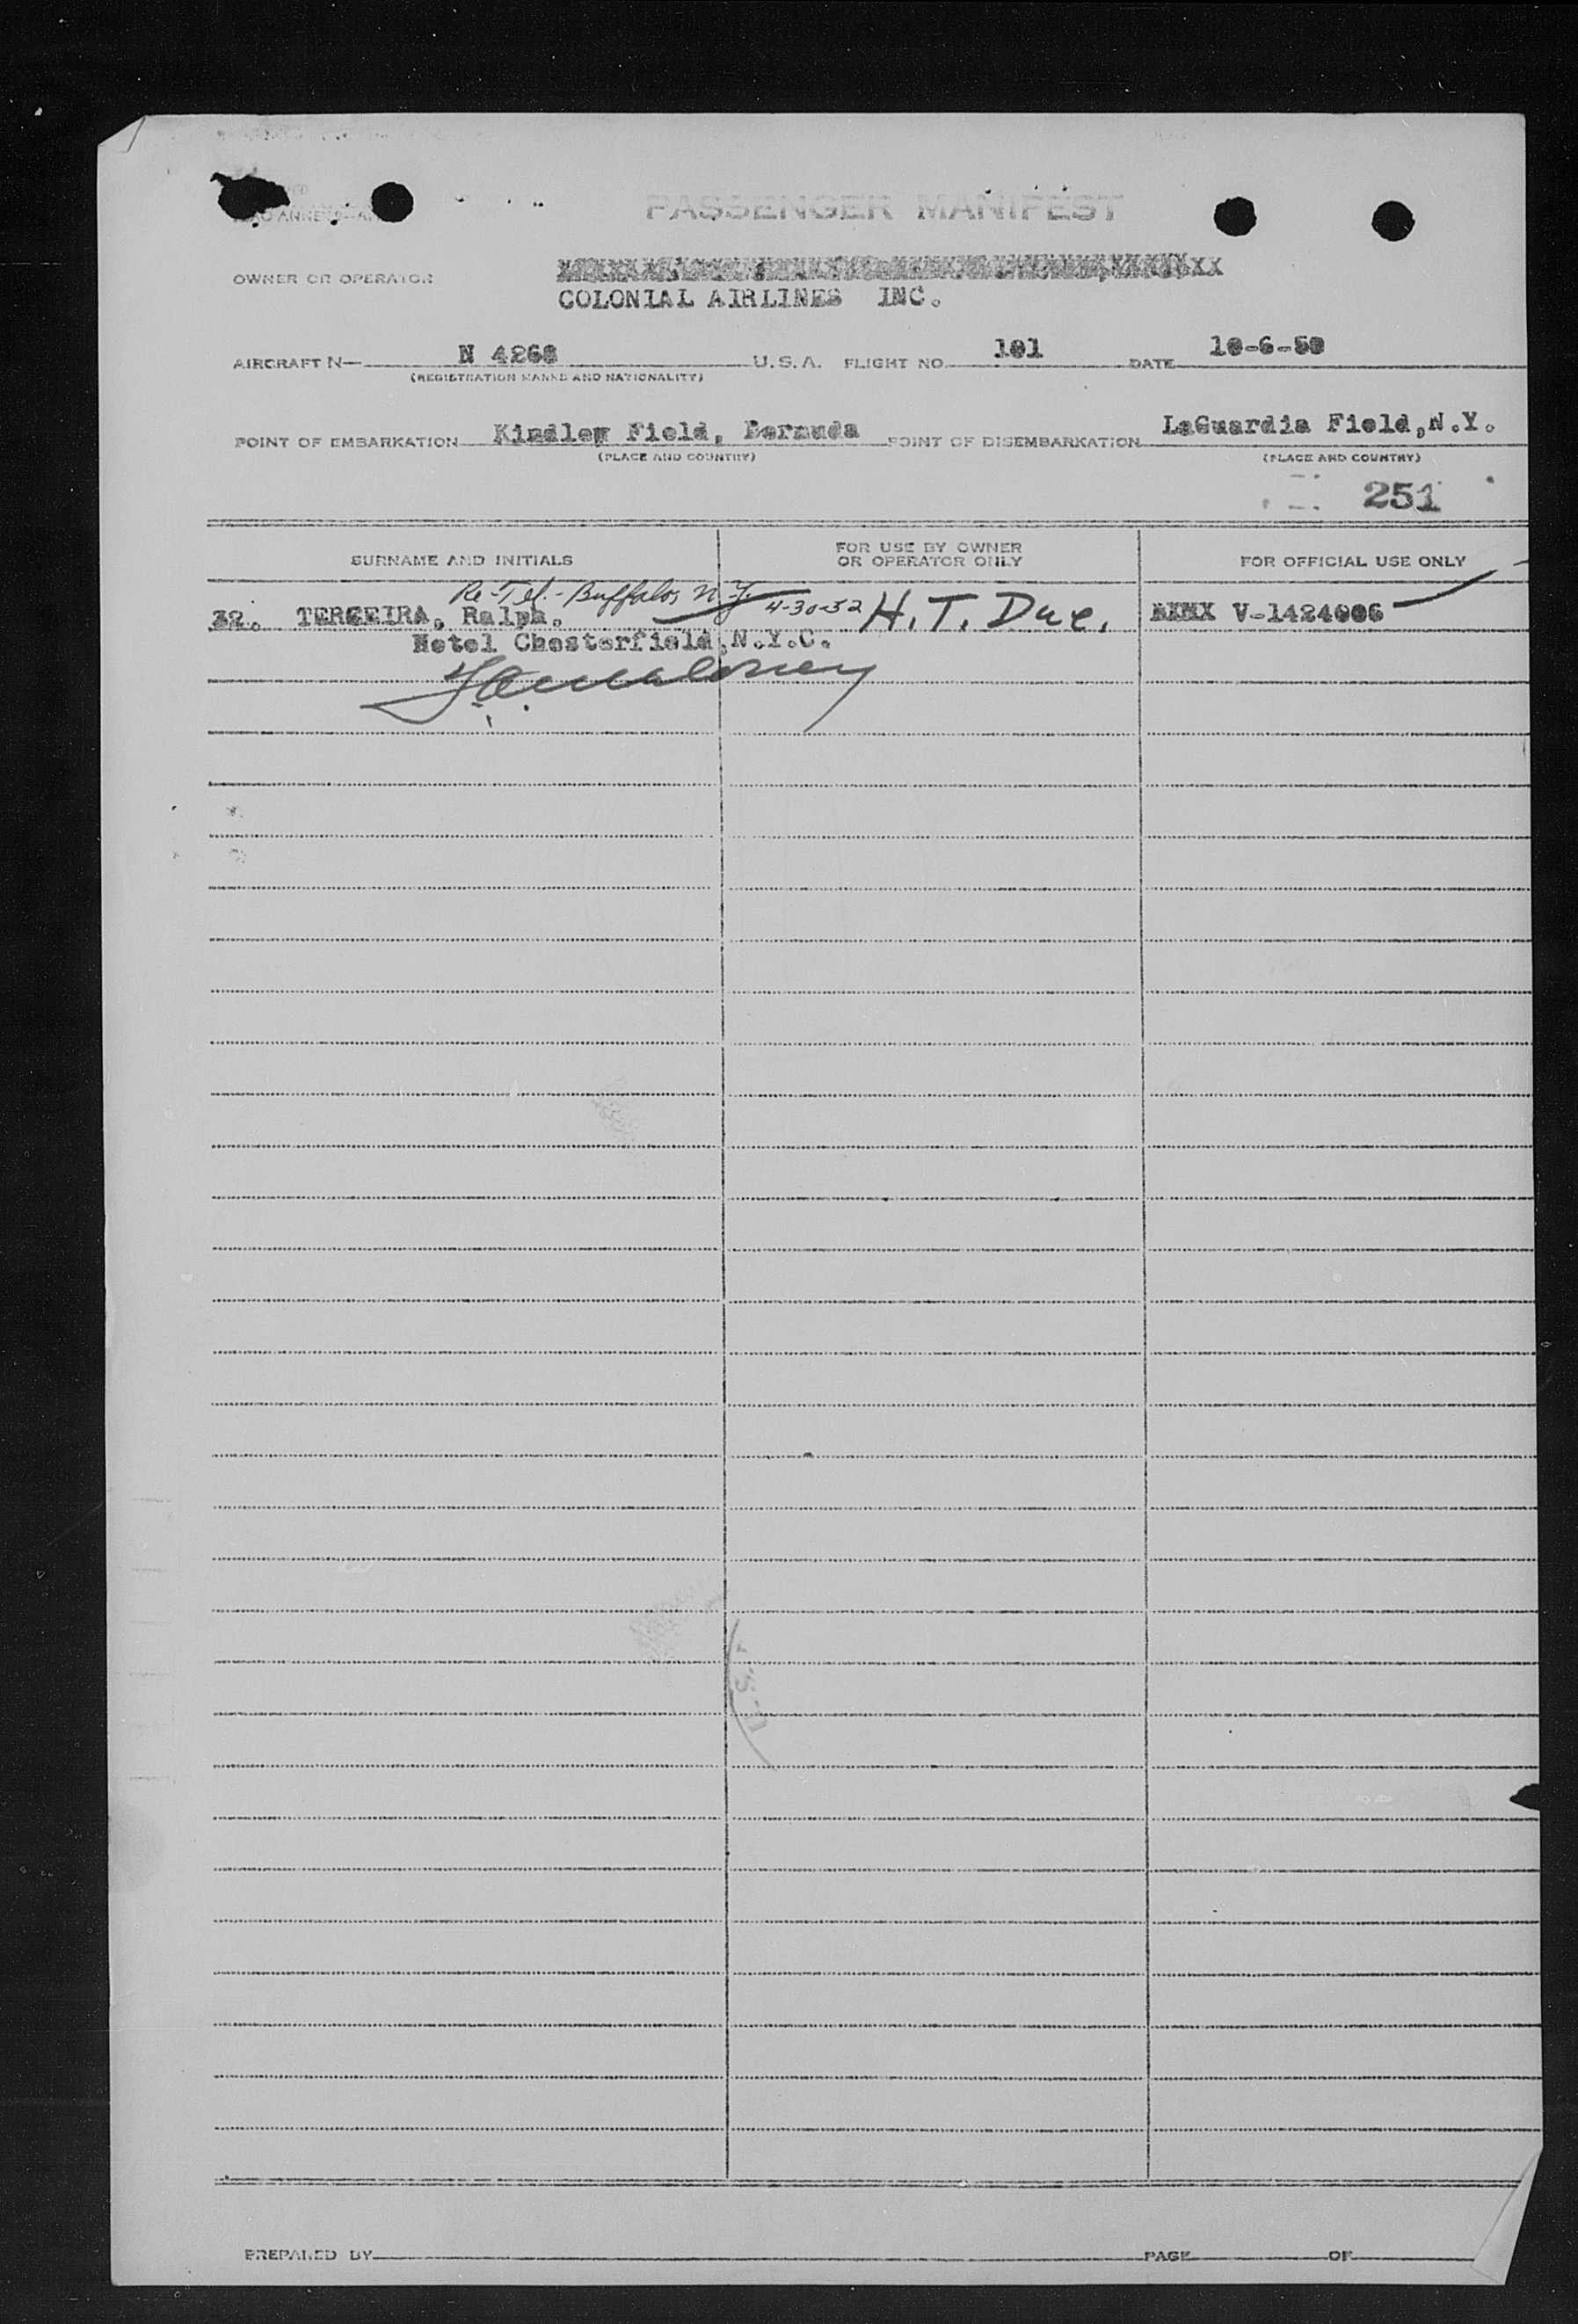 PASSENGER MANIFEST
OWNER OR OPERATOR
COLONIAL AIRLINES INC.
AIRCRAFT N— N 4268 U.S.A. FLIGHT NO. 101 DATE 10-6-50
(REGISTRATION MARKS AND NATIONALITY)
POINT OF EMBARKATION Kindley Field, Bermuda POINT OF DISEMBARKATION LaGuardia Field,N.Y.
(PLACE AND COUNTRY) (PLACE AND COUNTRY)
251
SURNAME AND INITIALS FOR USE BY OWNER OR OPERATOR ONLY FOR OFFICIAL USE ONLY
Re-Tel.-Buffalo, N.Y. 4-30-52 H.T. Due.
32. TERCEIRA, Ralph. V-1424006
Hotel Chesterfield,N.Y.C.
PREPARED BY PAGE OF